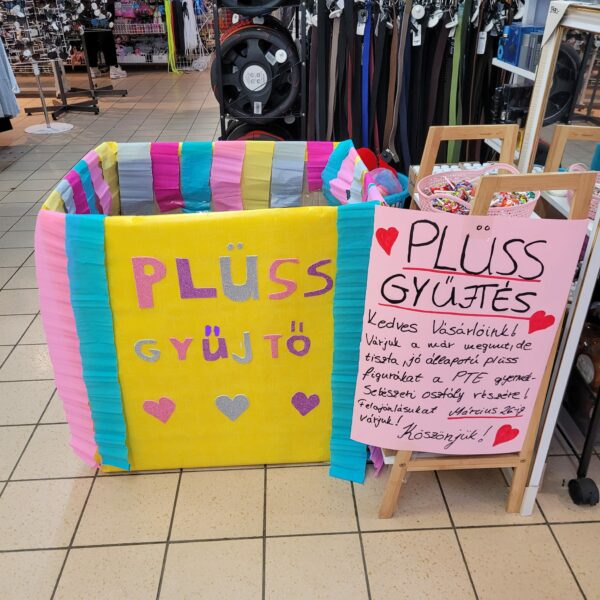 PLÜSS
GYŰJTŐ
PLÜSS
GYŰJTÉS
Kedves Vásárlóink!
Várjuk a már megunt, de
tiszta, jó állapotú plüss
figurákat a PTE gyermek-
Sebészeti osztály részére!
Felajánlásukat Március 26-ig
Várjuk!
Köszönjük!